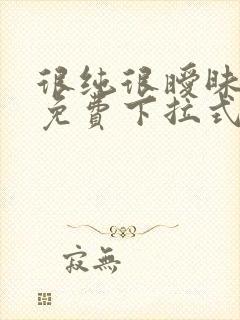 很纯很暧昧
免費下拉式
寂無